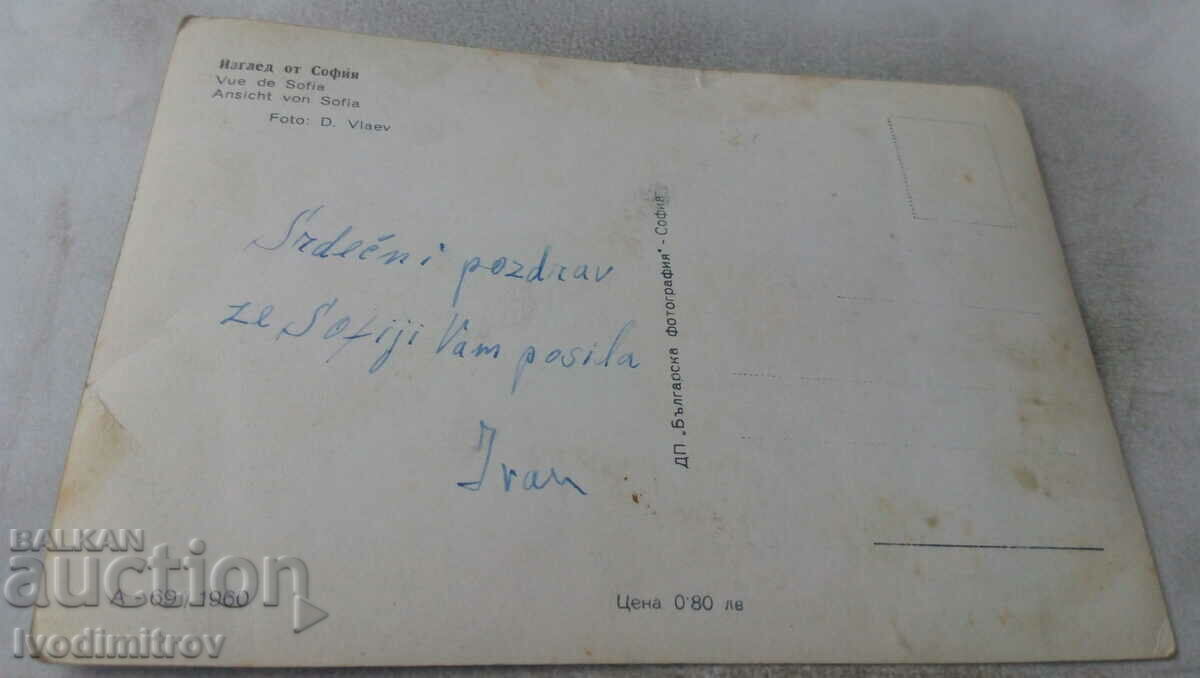 Изглед от София
Vue de Sofia
Ansicht von Sofia
Foto: D. Vlaev
Srdečni pozdrav
ze Sofiji Vam posila
Ivan
ДП „Българска фотография" - София
A - 69 / 1960
Цена 0'80 лв
BALKAN
auction
Ivodimitrov